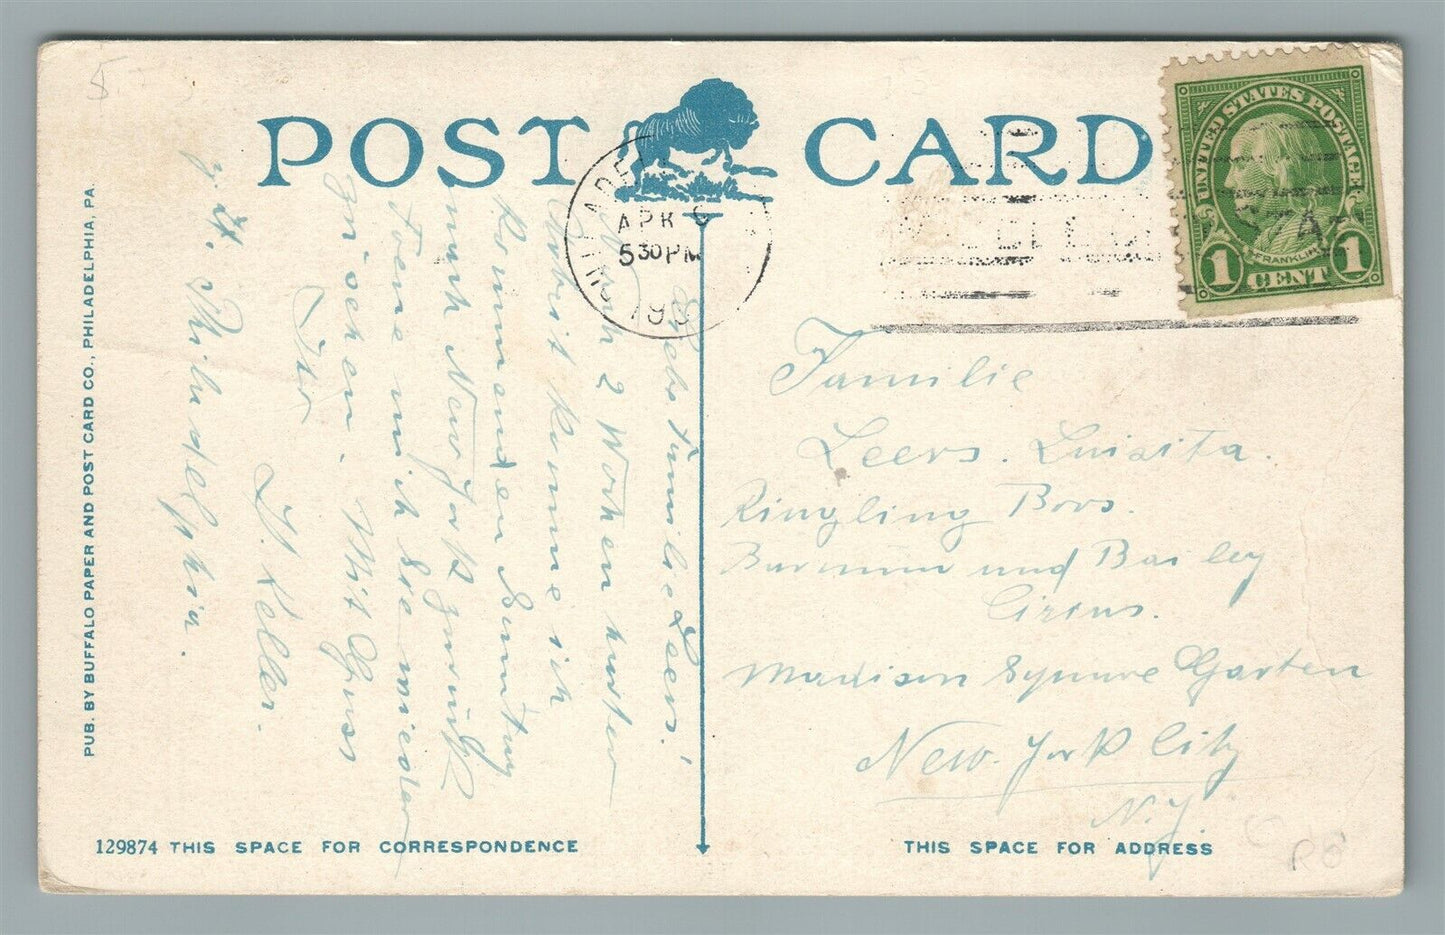 POST CARD
PHILADEL
APR
530 PM
UNITED STATES POSTAGE
FRANKLIN
1 CENT 1
Liebe Familie Leers!
Nach 2 Wochen harter
Arbeit komme ich
kommenden Sonntag
nach New York zurück
freue mich Sie wieder
Mit Gruss
Ihr
J. Keller.
z. Zt. Philadelphia.
Familie
Leers. Luisita.
Ringling Bros.
Barnum und Bailey
Circus.
Madison Square Garten
New. York City
N.Y.
PUB. BY BUFFALO PAPER AND POST CARD CO., PHILADELPHIA, PA.
129874 THIS SPACE FOR CORRESPONDENCE
THIS SPACE FOR ADDRESS